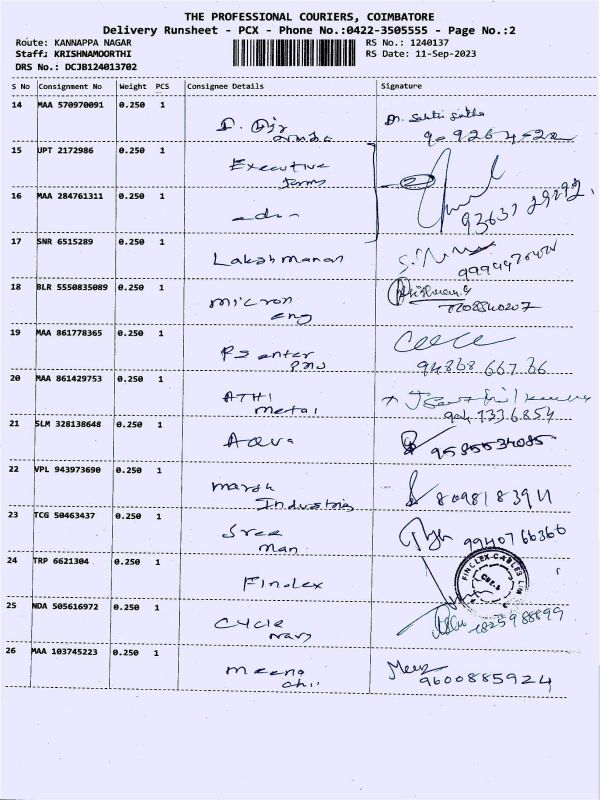 THE PROFESSIONAL COURIERS, COIMBATORE
Delivery Runsheet - PCX - Phone No.:0422-3505555 - Page No.:2
Route: KANNAPPA NAGAR RS No.: 1240137
Staff: KRISHNAMOORTHI RS Date: 11-Sep-2023
DRS No.: DCJB124013702
S No Consignment No Weight PCS Consignee Details Signature
14 MAA 570970091 0.250 1
15 UPT 2172986 0.250 1 Executive
16 MAA 284761311 0.250 1
17 SNR 6515289 0.250 1 Lakshmanan
18 BLR 5550835089 0.250 1 micron
eng 7708840207
19 MAA 861778365 0.250 1 PS enter
94868 667 66
20 MAA 861429753 0.250 1 ATHI
metal 904 7336854
21 SLM 328138648 0.250 1 Aqua 9585534085
22 VPL 943973690 0.250 1 marsh
Industries 8098183911
23 TCG 50463437 0.250 1 Sree
man 99407 66366
24 TRP 6621304 0.250 1 Finolex FINOLEX CABLES LTD
25 NDA 505616972 0.250 1 Cycle
26 MAA 103745223 0.250 1 meena
chi Meez
9600885924